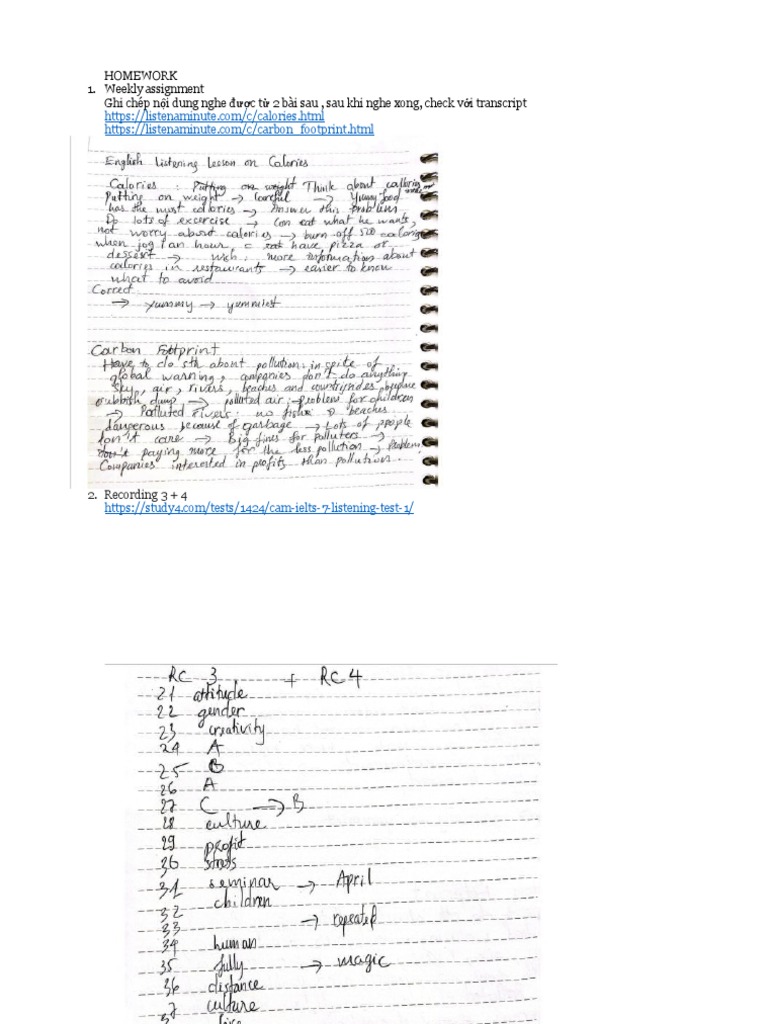 HOMEWORK
1. Weekly assignment
Ghi chép nội dung nghe được từ 2 bài sau , sau khi nghe xong, check với transcript
https://listenaminute.com/c/calories.html
https://listenaminute.com/c/carbon_footprint.html
English Listening Lesson on Calories
Calories : Putting on weight Think about callories
Putting on weight → Careful → Yummy food
has the most calories → Answer this problem
Do lots of excercise → Can eat what he wants,
not worry about calories → burn off 500 calories
when jog 1 an hour, have pizza or
dessert → Wish, more information about
calories in restaurants → easier to know
what to avoid
Correct
→ yummy → yummiest
Carbon Footprint
Have to do sth about pollution: in spite of
global warning, companies don't do anything
Sky, air, rivers, beaches and countrysides
rubbish dump → polluted air: problem for children
→ Polluted rivers: no fishe beaches
dangerous because of garbage → Lots of people
don't care → Big fines for polluters →
don't paying more for the less pollution → Problem
Companies interested in profits than pollution.
2. Recording 3 + 4
https://study4.com/tests/1424/cam-ielts-7-listening-test-1/
RC 3 + RC 4
21 attitude
22 gender
23 creativity
24 A
25 B
26 A
27 C → B
28 culture
29 profit
30 stress
31 seminar → April
32 children
33 → repeated
34 human
35 fully → magic
36 distance
culture